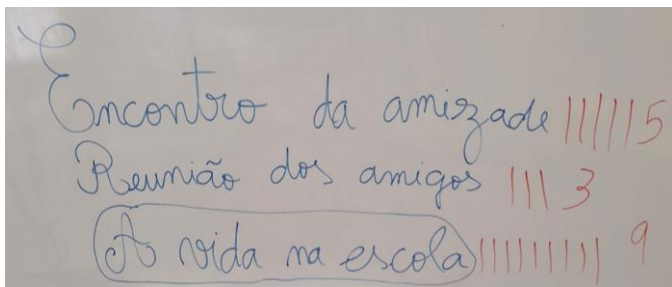 Encontro da amizade |||||| 5
Reunião dos amigos ||| 3
A vida na escola ||||||||| 9